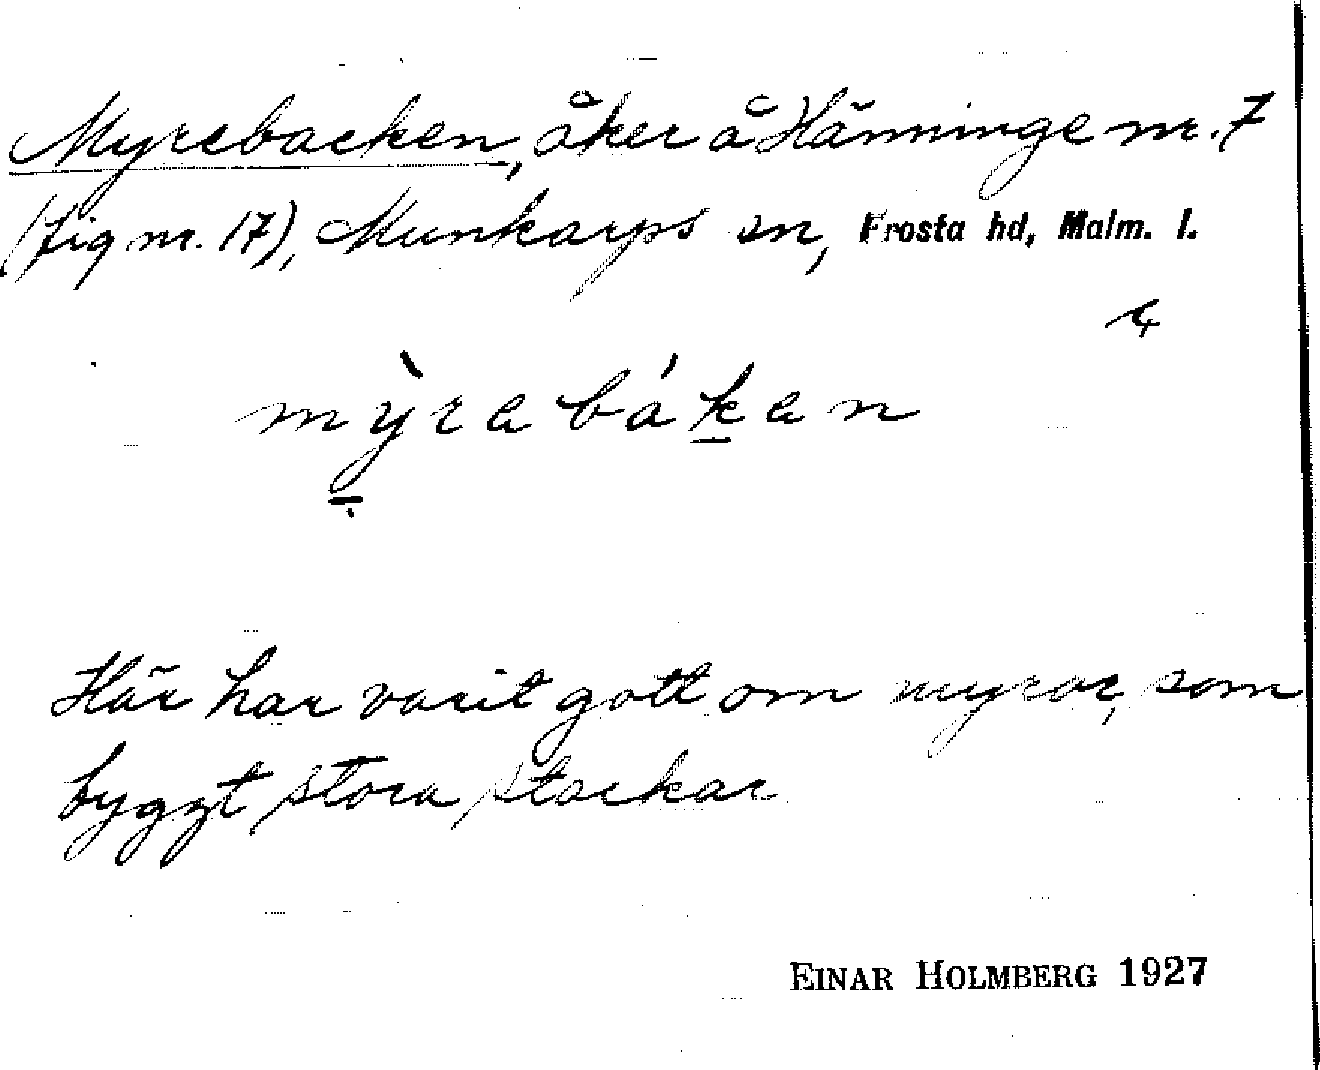 Myrebacken, åker å Hänninge nr. 7
(fig nr. 17), Munkarps sn, Frosta hd, Malm. l.
mỳrebáken
Här har varit gott om myror, som
byggt stora stackar
EINAR HOLMBERG 1927